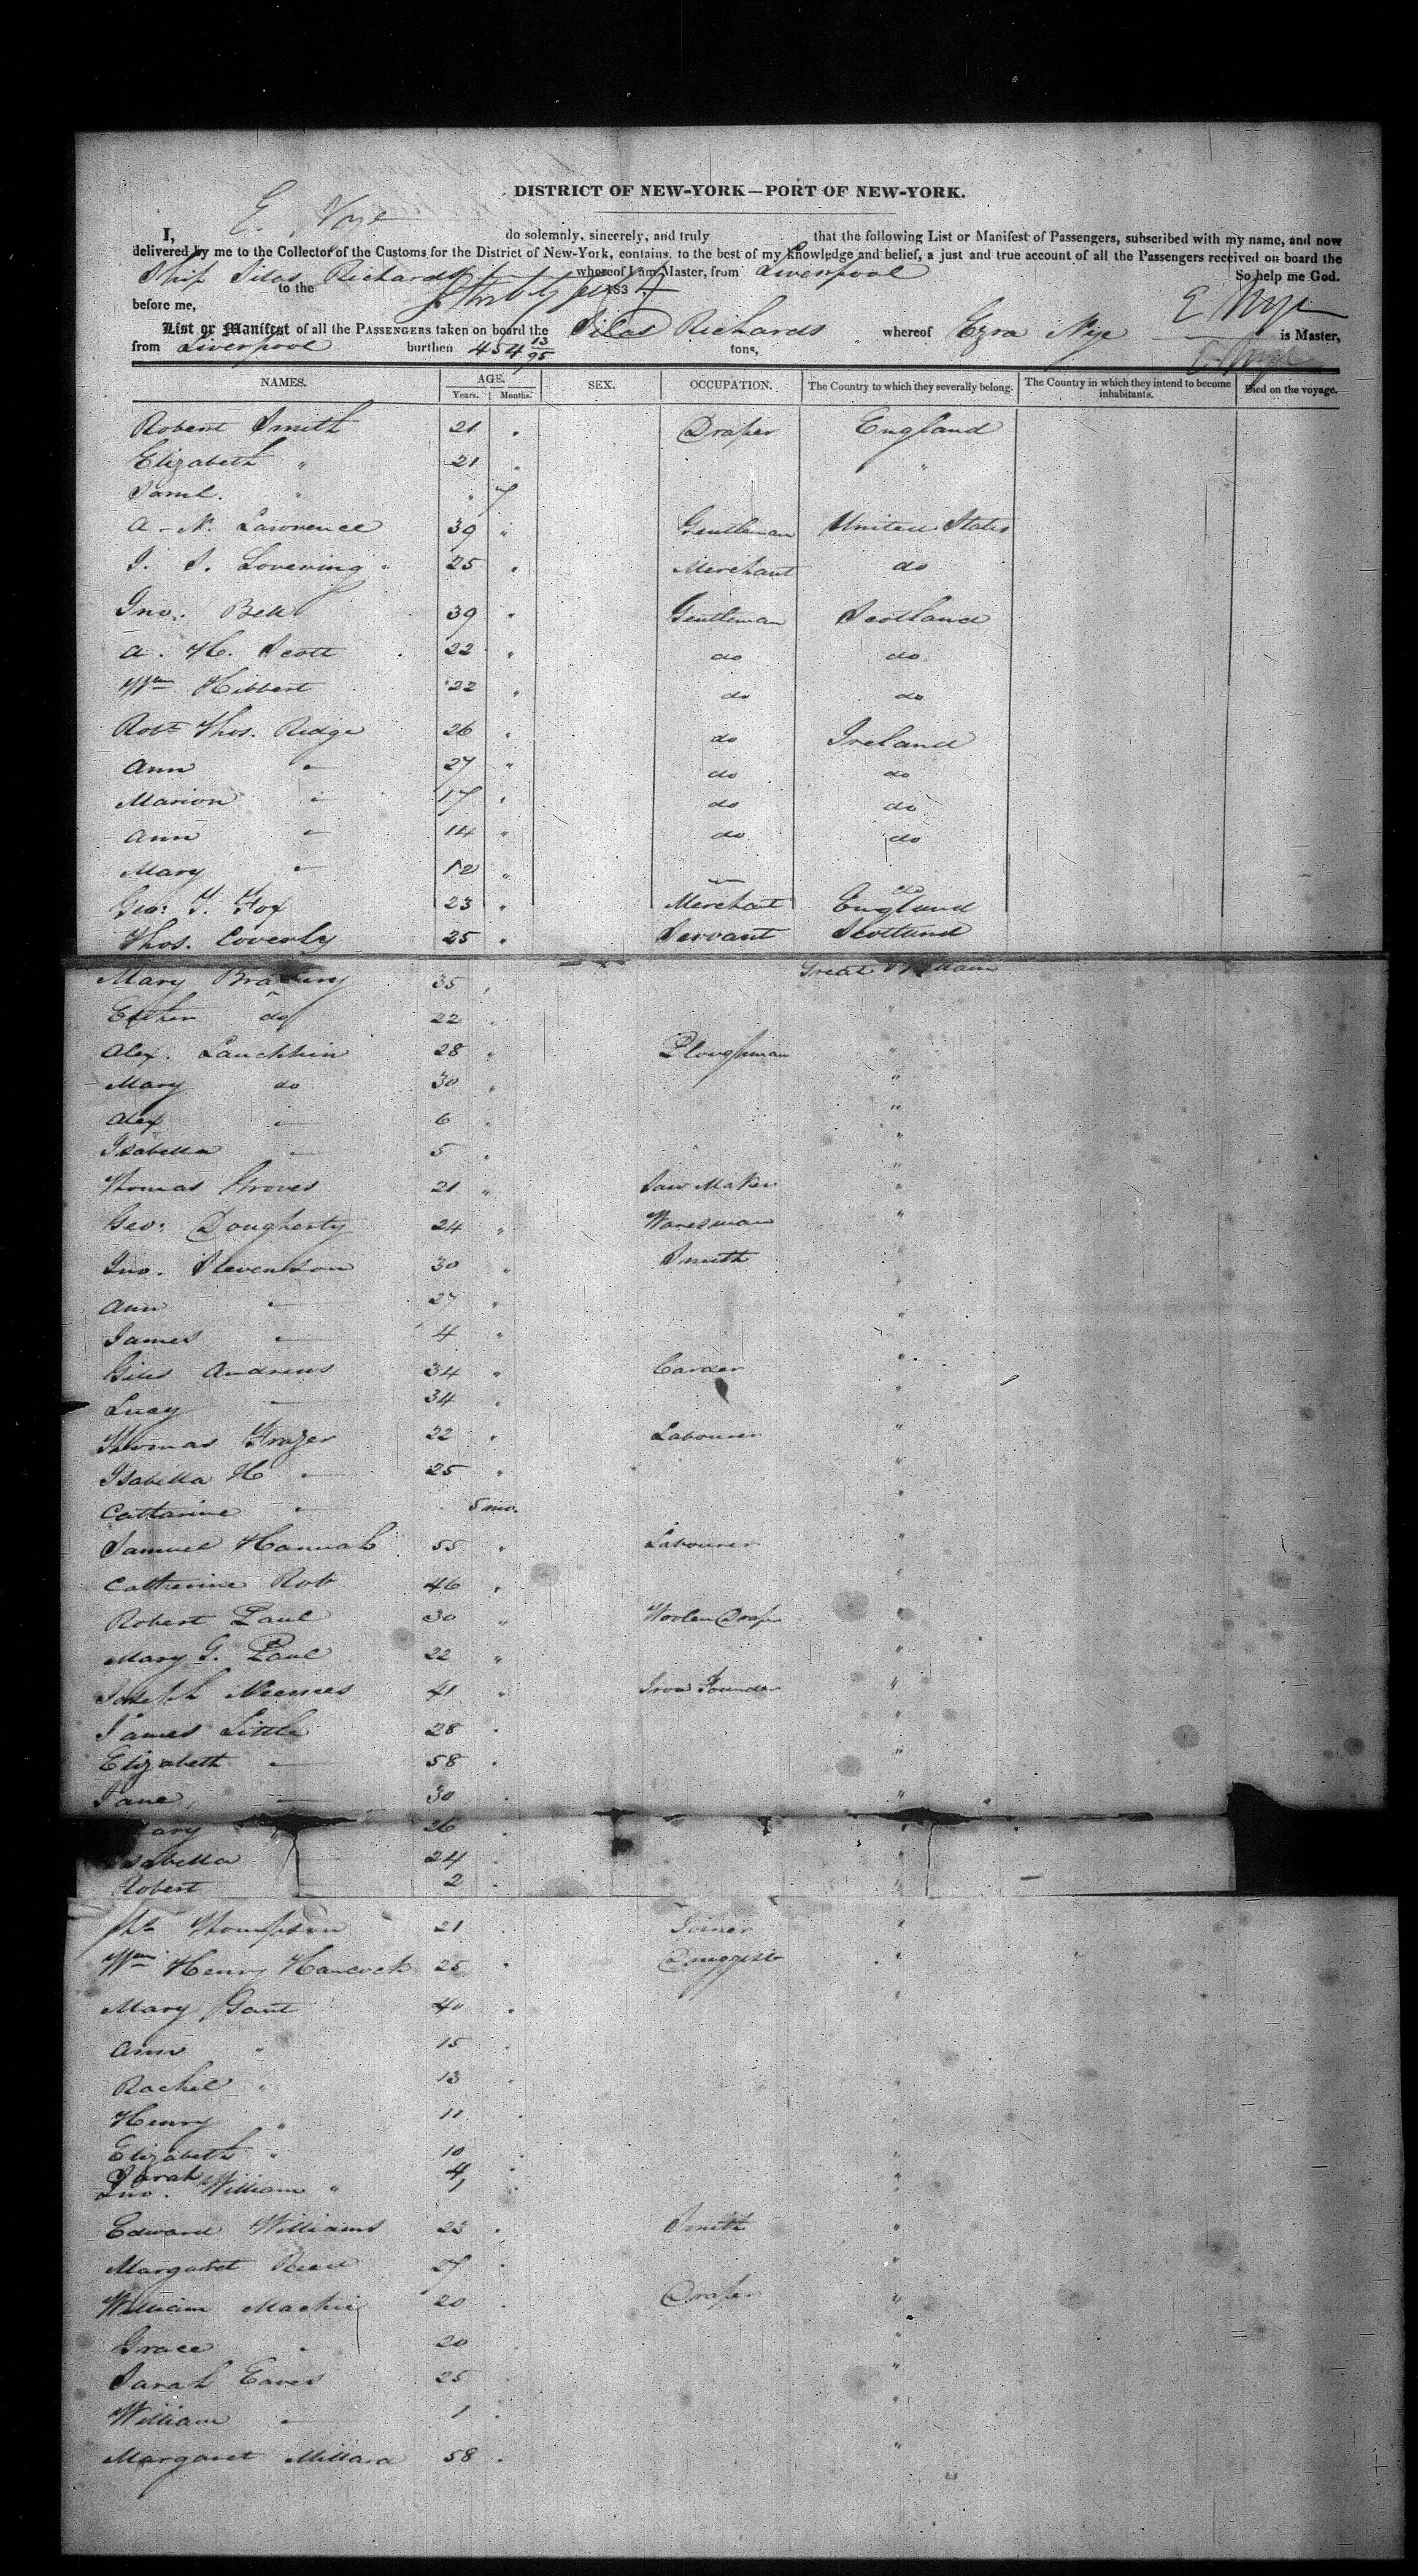 DISTRICT OF NEW-YORK—PORT OF NEW-YORK.
I, E. Nye do solemnly, sincerely, and truly that the following List or Manifest of Passengers, subscribed with my name, and now
delivered by me to the Collector of the Customs for the District of New-York, contains, to the best of my knowledge and belief, a just and true account of all the Passengers received on board the
Ship Silas Richards whereof I am Master, from Liverpool So help me God.
to the 183 4
before me, E Nye
List or Manifest of all the PASSENGERS taken on board the Silas Richards whereof Ezra Nye is Master,
from Liverpool burthen 454 13/95 tons, E. Nye
NAMES. AGE. SEX. OCCUPATION. The Country to which they severally belong. The Country in which they intend to become inhabitants. Died on the voyage.
Years. Months.
Robert Smith 21 Draper England
Elizabeth " 21 " "
Saml. " " 7
A. N. Lawrence 39 " Gentleman United States
J. S. Lovering 25 " Merchant do
Jno. Bell 39 " Gentleman Scotland
A. H. Scott 22 " do do
Wm Hibbert 22 " do do
Robt Thos. Ridge 26 " do Ireland
Ann " 27 " do do
Marion " 17 " do do
Ann " 14 " do do
Mary " 12 " do
Geo: T. Fox 23 " Merchant England
Thos. Coverly 25 " Servant Scotland
Mary 35 Great Britain
Esther do 22 "
Alex. Lauchlin 28 " Ploughman "
Mary do 30 "
Alex — 6 "
Isabella — 5 "
Thomas Groves 21 " Saw Maker "
Geo: Dougherty 24 " Waresman "
Jno. Stevenson 30 " Smith "
Ann — 27 "
James — 4 " "
Giles Andrews 34 " Carder "
Lucy — 34 "
Thomas Frazer 22 " Labourer "
Isabella H — 25 " "
Catharine — 5 mo. "
Samuel Hannah 55 " Labourer "
Catherine Rob 46 " "
Robert Paul 30 " Woolen Draper "
Mary G. Paul 22 " "
Joseph Neemes 41 " Iron Founder "
James Little 28 "
Elizabeth — 58 "
Jane — 30 "
Mary 26 "
Isabella 24 "
Robert 2 "
Thompson 21 Joiner "
Wm Henry Hancock 25 Druggist "
Mary Gant 40 "
Ann " 15
Rachel " 13 "
Henry " 11
Elizabeth " 10 "
Sarah 4 "
Jno. William " "
Edward Williams 23 Smith "
Margaret Reed 27 "
William Mackie 20 Draper "
Grace " 20 "
Sarah Eaves 25 "
William — 1 "
Margaret 58 "